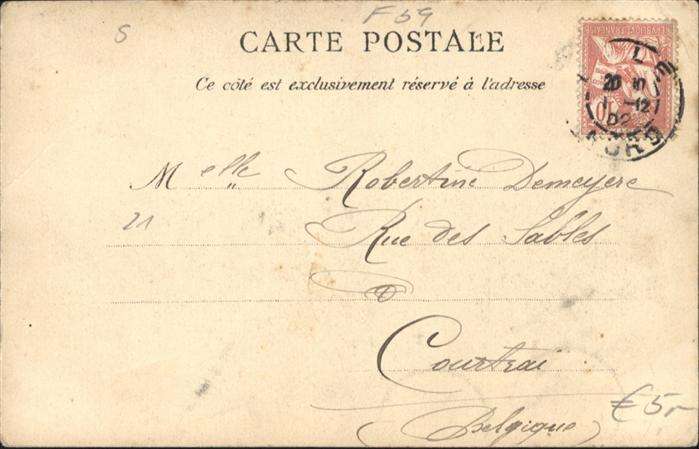 F 59
S
CARTE POSTALE
Ce côté est exclusivement réservé à l'adresse
20
12
02
NORD
Melle Robertine Demeyere
21
Rue des Sables
Courtrai
Belgique
€5,-